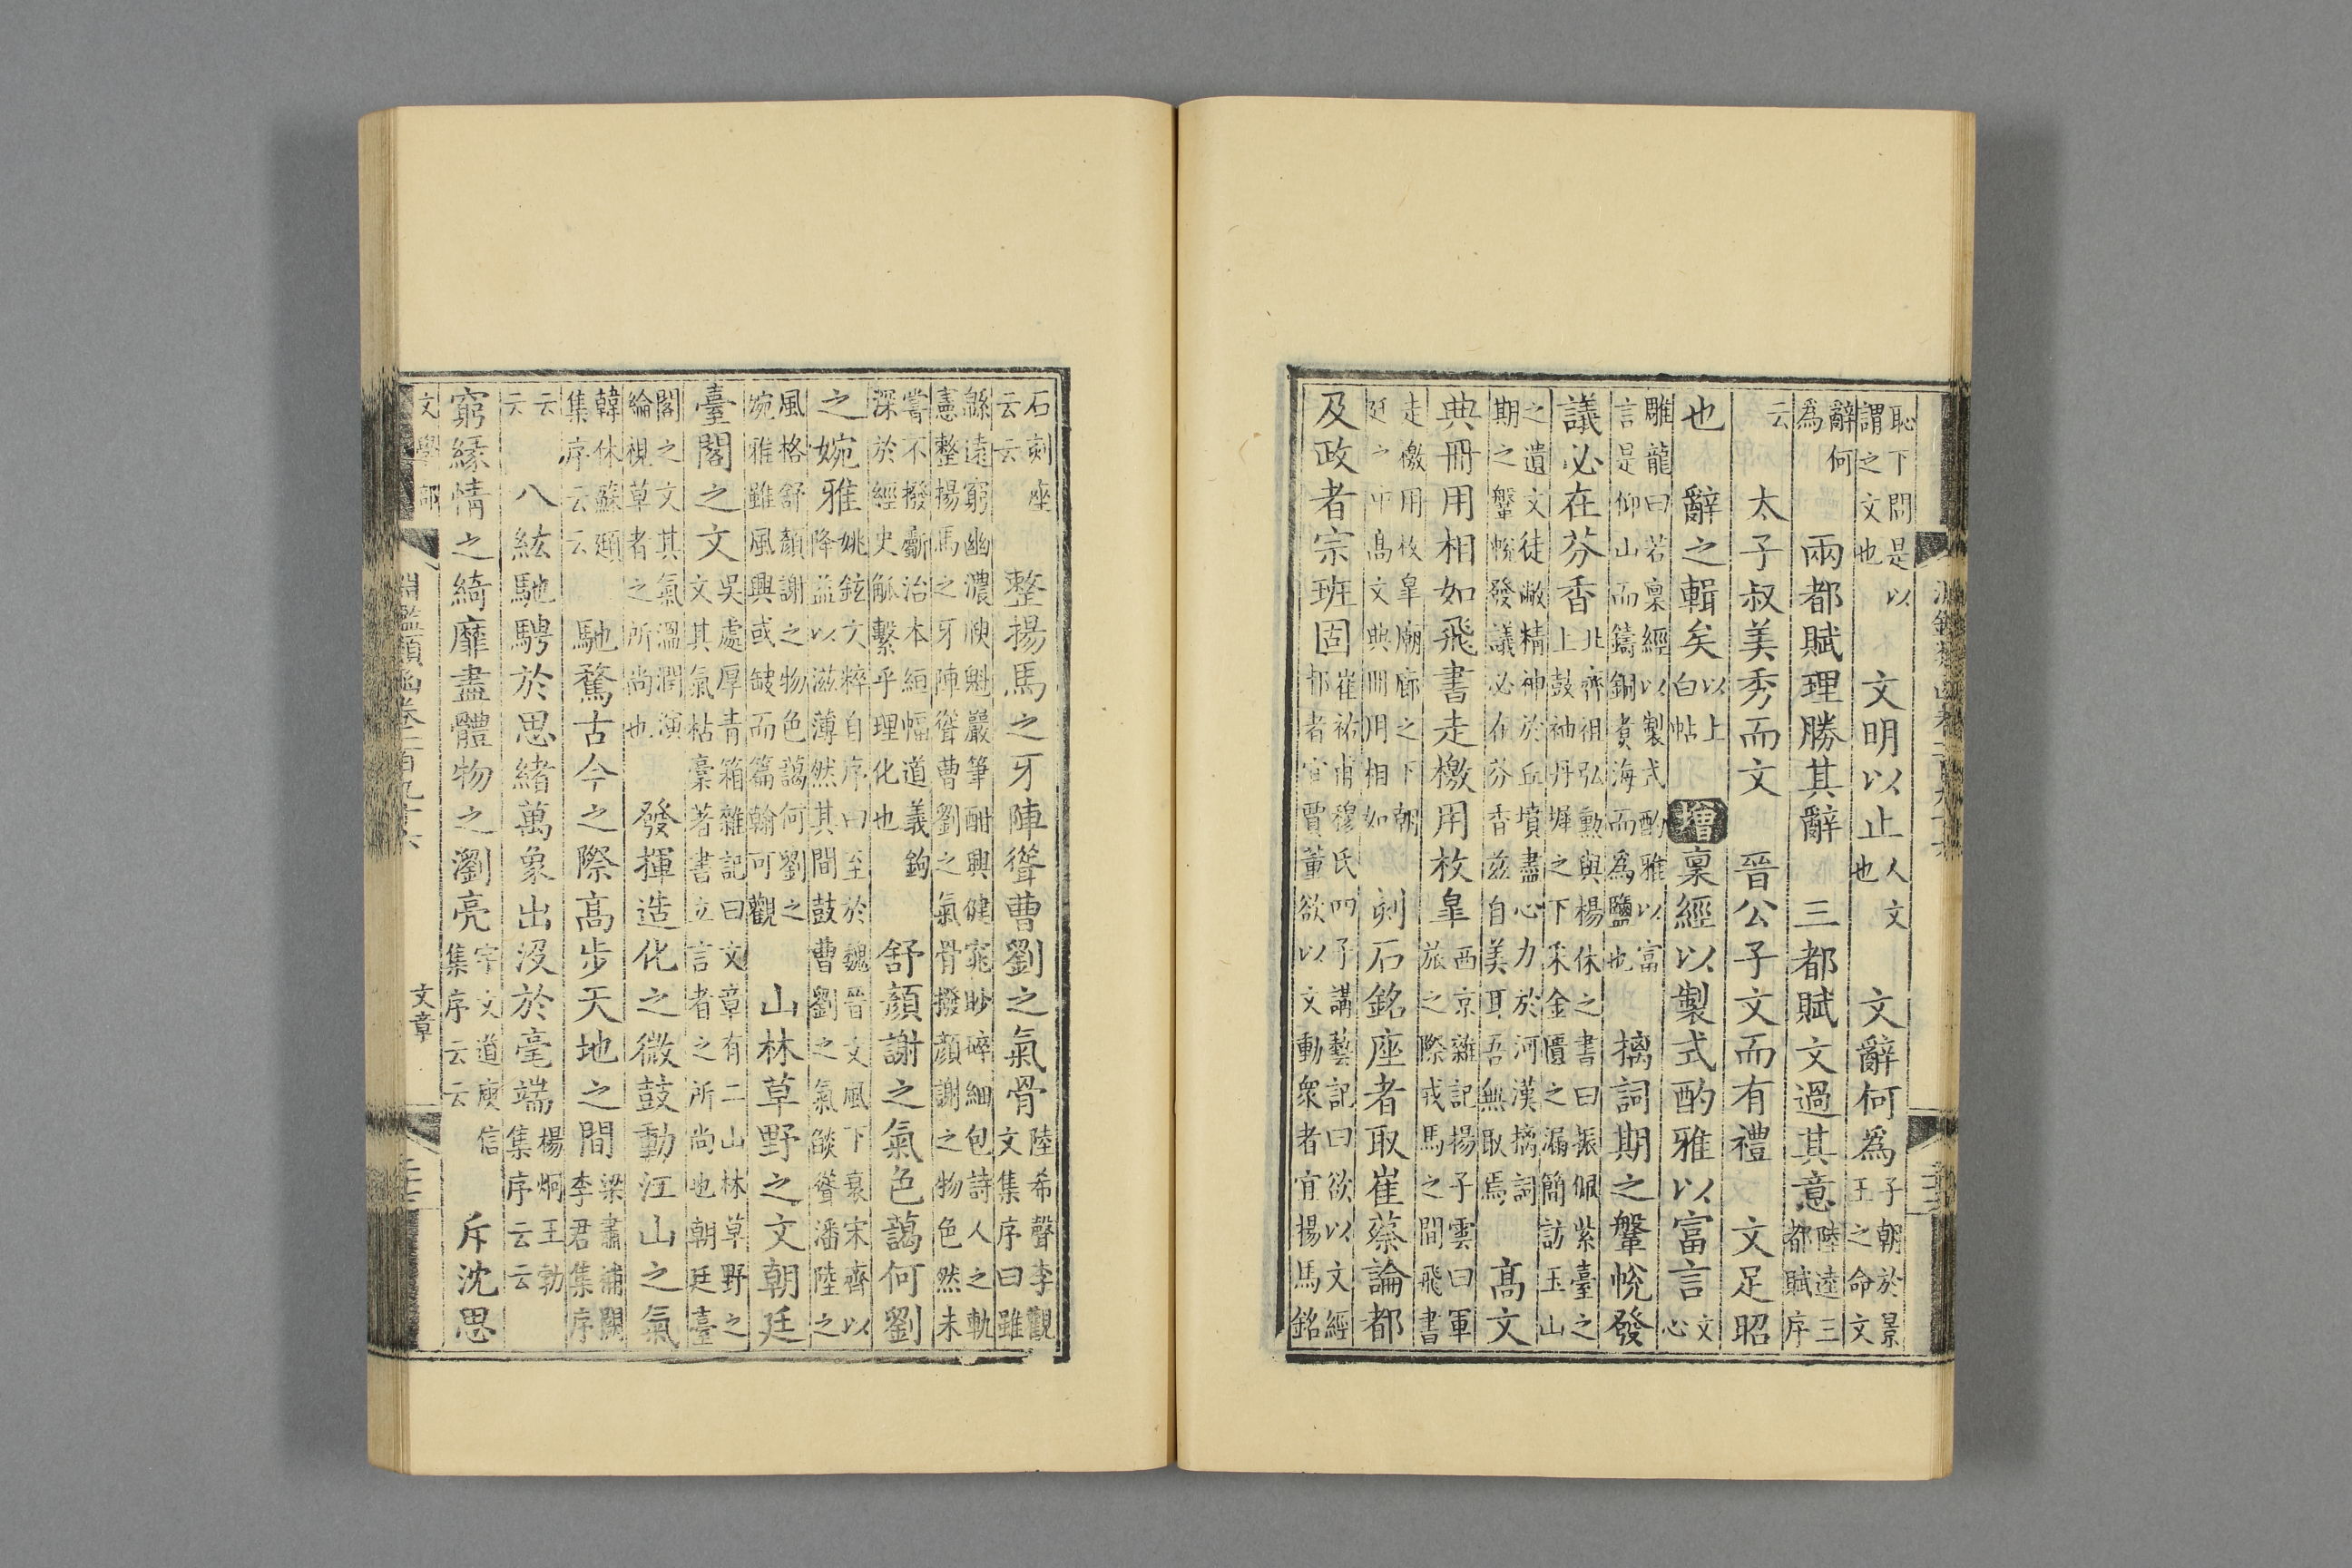 恥下問是以謂之文也 文明以止 人文也 文辭何爲 子朝於景王之命文
辭何爲 兩都賦理勝其辭 三都賦文過其意 陸逵三都賦序
云 太子叔美秀而文 晉公子文而有禮 文足昭
也 辭之輯矣 以上白帖 增 稟經以製式酌雅以富言 文心
雕龍曰若稟經以製式酌雅以富言是仰山而鑄銅煑海而爲鹽也 摛詞期之鞶帨發
議必在芬香 北齊祖弘勳與楊休之書曰振佩紫臺之上鼓袖丹墀之下采金匱之漏簡訪玉山
之遺文文徒敝精神於丘墳盡心力於河漢摛詞期之鞶帨發議必在芬香茲自美耳吾無取焉 高文
典冊用相如飛書走檄用枚臯 西京雜記揚子雲曰軍旅之際戎馬之間飛書
走檄用枚臯廟廊之下朝廷之中高文典冊用相如 刻石銘座者取崔蔡論都
及政者宗班固 崔祐甫穆氏四子講藝記曰欲以文經邦者宜賈董欲以文動衆者宜揚馬銘
石刻座云云 整揚馬之牙陣聳曹劉之氣骨 陸希聲李觀文集序曰雖
緜遠窮幽濃腴魁巖筆酣興健窕眇碎細包詩人之軌憲整揚馬之牙陣聳曹劉之氣骨撥顔謝之物色然未
嘗不撥斸治本絙幅道義鉤深於經史觝繫乎理化也 舒顔謝之氣色藹何劉
之婉雅 姚鉉文粹自序曰至於魏晉文風下衰宋齊以降益以滋薄然其間鼓曹劉之氣燄聳潘陸之
風格舒顔謝之物色藹何劉之婉雅雖風興或缺而篇翰可觀 山林草野之文朝廷
臺閣之文 吳處厚青箱雜記曰文章有二山林草野之文其氣枯槁著書立言者之所尚也朝廷臺
閣之文其氣溫潤演綸視草者之所尚也 發揮造化之微鼓動江山之氣
韓休蘇頲集序云云 馳騖古今之際高步天地之間 梁肅補闕李君集序
云云 八紘馳騁於思緒萬象出沒於毫端 楊炯王勃集序云云
窮緣情之綺靡盡體物之瀏亮 宇文逌庾信集序云云 斥沈思
文學部 淵鑑類函卷一百九十六 文章